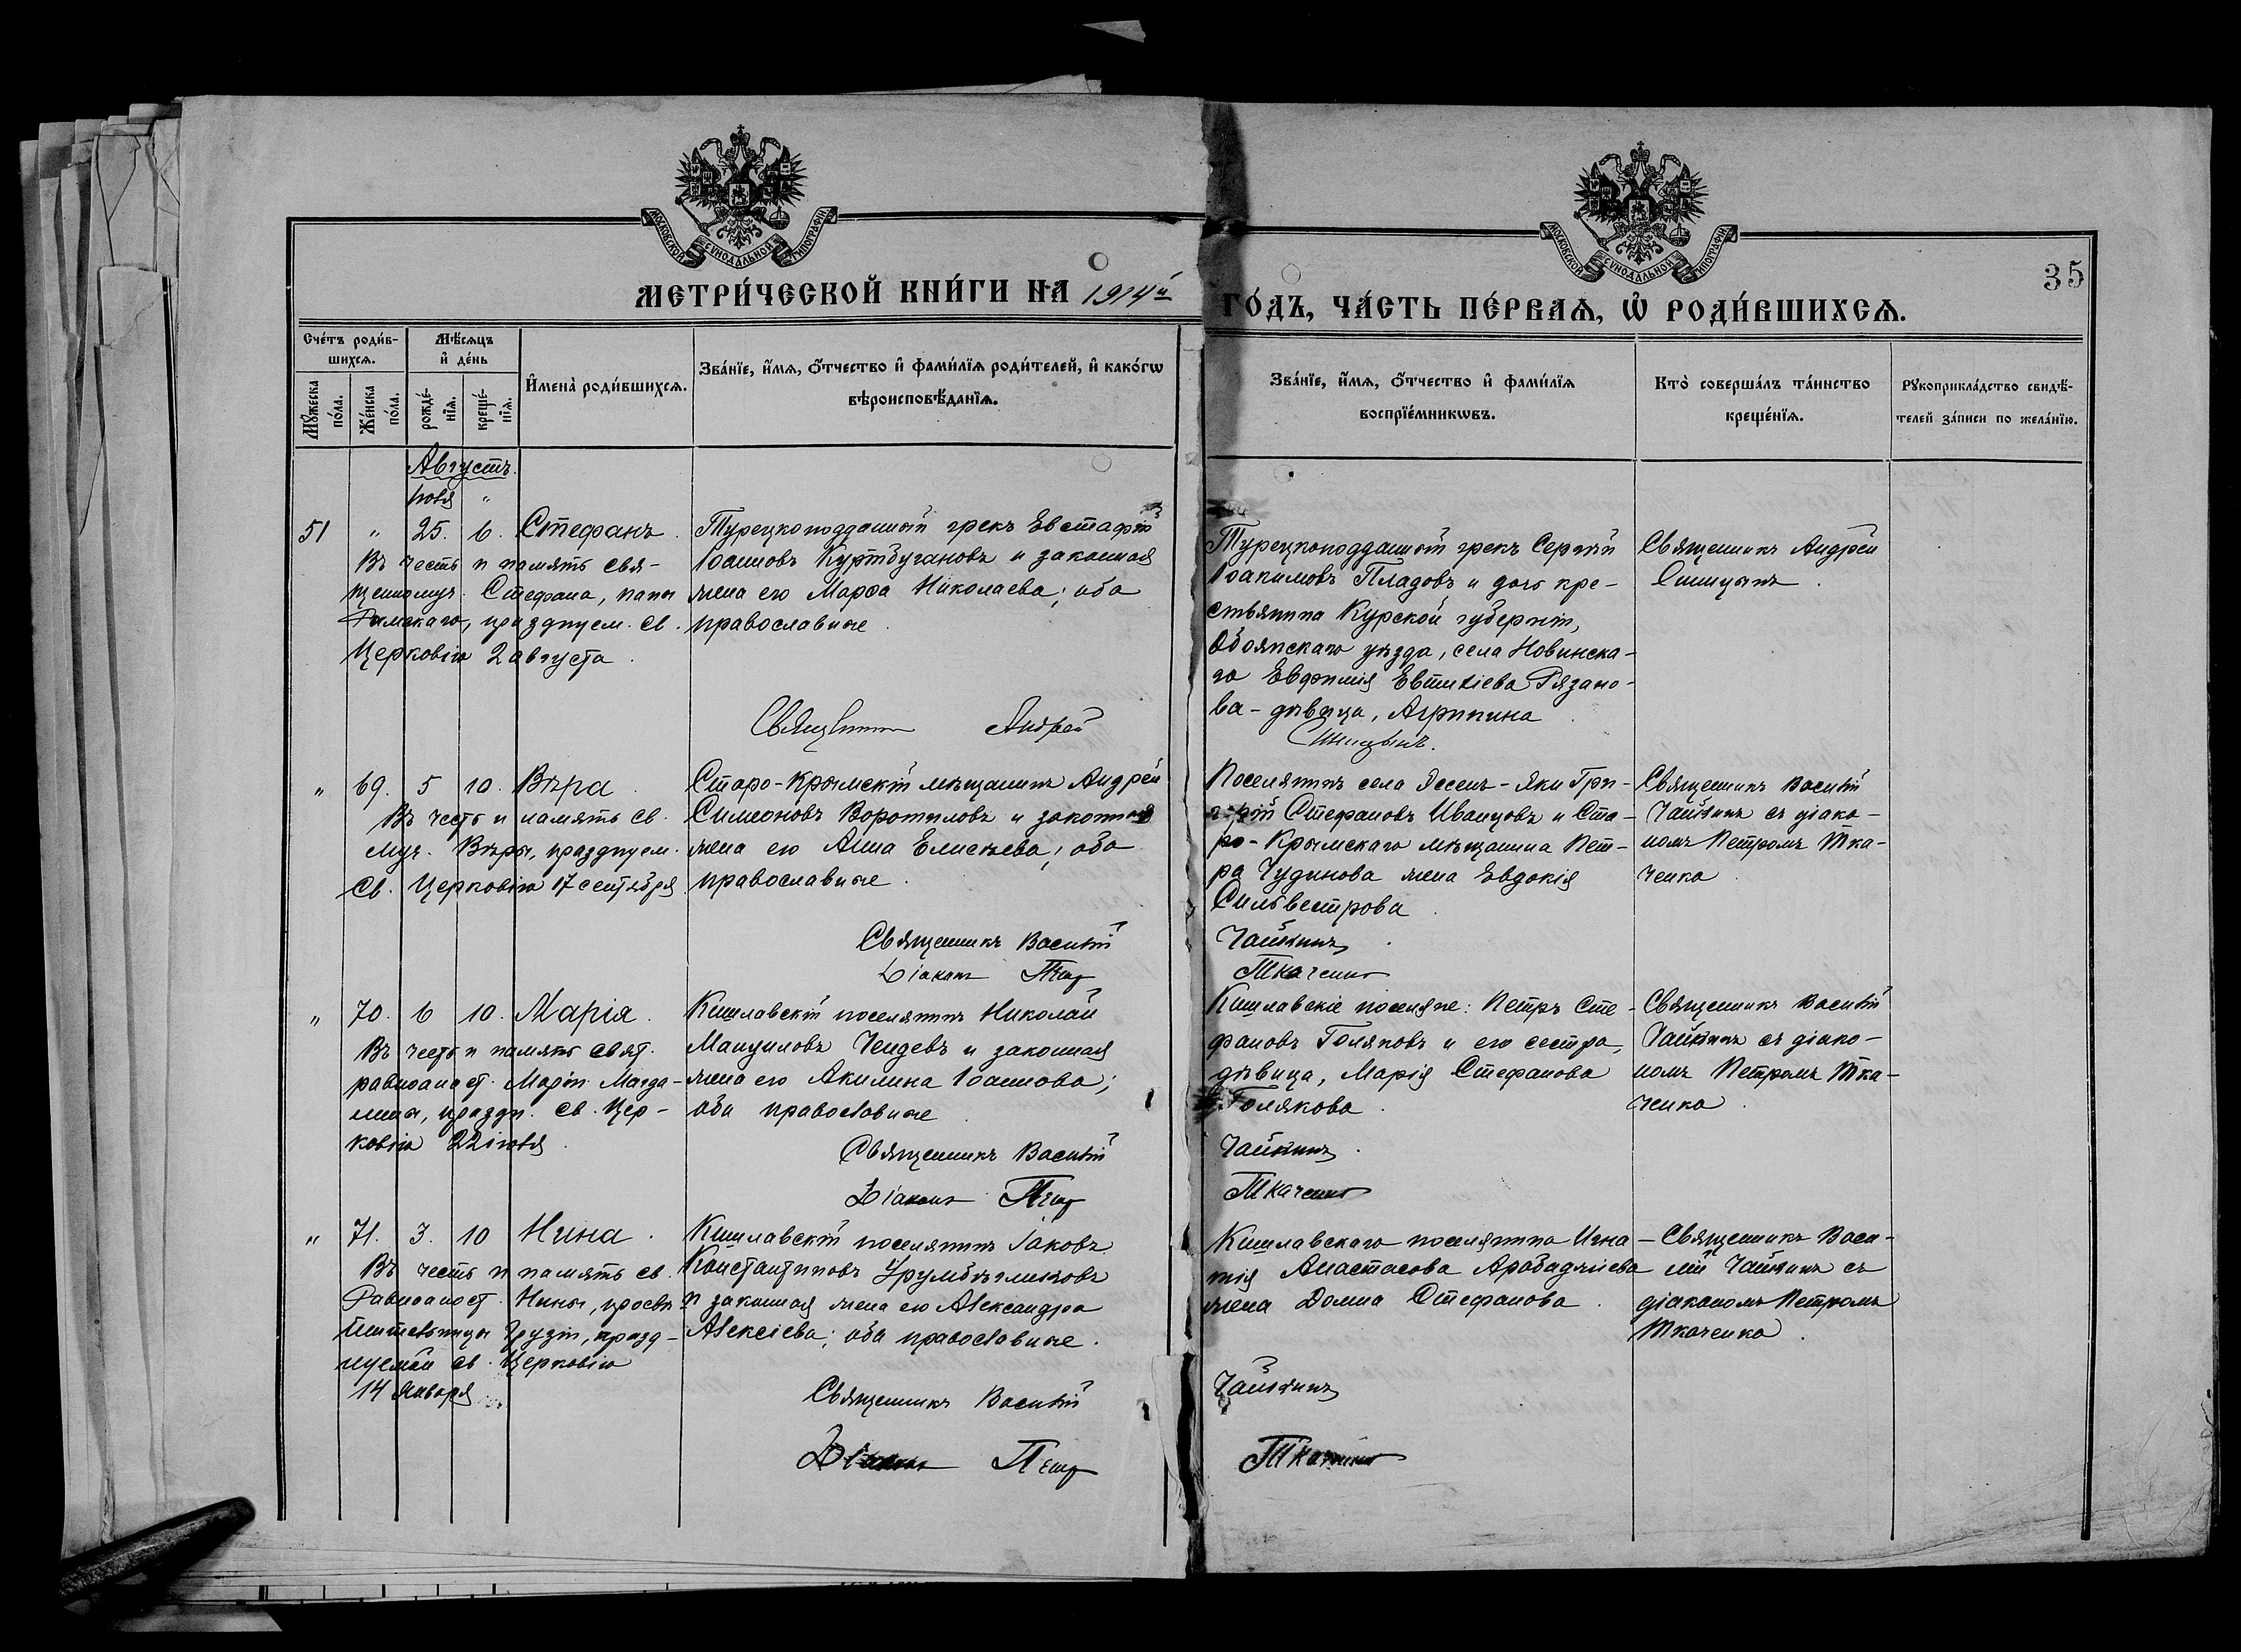 МОСКОВСКОЙ СУНОДАЛЬНОЙ ТИПОГРАФІИ
МОСКОВСКОЙ СУНОДАЛЬНОЙ ТИПОГРАФІИ
35
МЕТРИ́ЧЕСКОЙ КНИ́ГИ НА 1914й ГО́ДЪ, ЧА́СТЬ ПЕ́РВАѦ, Ѡ҆ РОДИ́ВШИХСѦ.
Сче́тъ роди́в-
шихсѧ.
Мꙋ́жеска по́ла.
Же́нска по́ла.
Мѣ́сѧцъ
и҆ де́нь
рожде́-
нїѧ.
креще́-
нїѧ.
И҆мена̀ роди́вшихсѧ.
Зва́нїе, и҆́мѧ, ѻ҆́тчество и҆ фами́лїѧ роди́телей, и҆ како́гѡ
вѣроисповѣ́данїѧ.
Зва́нїе, и҆́мѧ, ѻ҆́тчество и҆ фами́лїѧ
воспрїе́мникѡвъ.
Кто̀ соверша́лъ та́инство
креще́нїѧ.
Рꙋкоприкла́дство свидѣ́-
телей за́писи по жела́нїю.
Августъ.
Іюля "
51 " 25. 6. Стефанъ.
Въ честь и память свя-
щенномуч. Стефана, папы
Римскаго, празднуем. св.
Церковію 2 августа.
Турецкоподданный грекъ Евстафій
Іоанновъ Куртбугановъ и законная
жена его Марѳа Николаева; оба
православные.
Турецкоподданный грекъ Сергѣй
Іоакимовъ Пладовъ и дочь кре-
стьянина Курской губерніи,
Обоянскаго уѣзда, села Новинска-
го Евфимія Евтихіева Рязано-
ва - дѣвица, Агрипина
Священникъ Андрей
Синицынъ.
Священникъ Андрей
Синицынъ.
" 69. 5 10. Вѣра.
Въ честь и память св.
муч. Вѣры, празднуем.
св. Церковію 17 сентября
Старо-Крымскій мѣщанинъ Андрей
Симеоновъ Воротиловъ и законная
жена его Анна Елисѣева; оба
православные.
Поселянинъ села Эссенъ-Эки Гри-
горій Стефановъ Иванцовъ и Ста-
ро-Крымскаго мѣщанина Пет-
ра Чудинова жена Евдокія
Сильвестрова.
Священникъ Василій
Чайкинъ съ діако-
номъ Петромъ Тка-
ченко.
Священникъ Василій Чайкинъ.
Діаконъ Петръ Ткаченко
" 70. 6 10. Марія.
Въ честь и память свят.
равноапост. Маріи Магда-
лины, праздн. св. Цер-
ковію 22 іюля.
Кишлавскій поселянинъ Николай
Мануиловъ Чендевъ и законная
жена его Акилина Іоаннова;
оба православные.
Кишлавскіе поселяне: Петръ Сте-
фановъ Голяковъ и его сестра,
дѣвица, Марія Стефанова
Голякова.
Священникъ Василій
Чайкинъ съ діако-
номъ Петромъ Тка-
ченко.
Священникъ Василій Чайкинъ.
Діаконъ Петръ Ткаченко
" 71. 3. 10 Нина.
Въ честь и память св.
Равноапост. Нины, просвѣ-
тительницы Грузіи, празд-
нуемой св. Церковію
14 Января.
Кишлавскій поселянинъ Іаковъ
Константиновъ
и законная жена его Александра
Алексіева; оба православные.
Кишлавскаго поселянина Игна-
тія Анастасова Арабаджіева
жена Домна Стефанова.
Священникъ Васи-
лій Чайкинъ съ
діакономъ Петромъ
Ткаченко.
Священникъ Василій Чайкинъ
Діаконъ Петръ Ткаченко